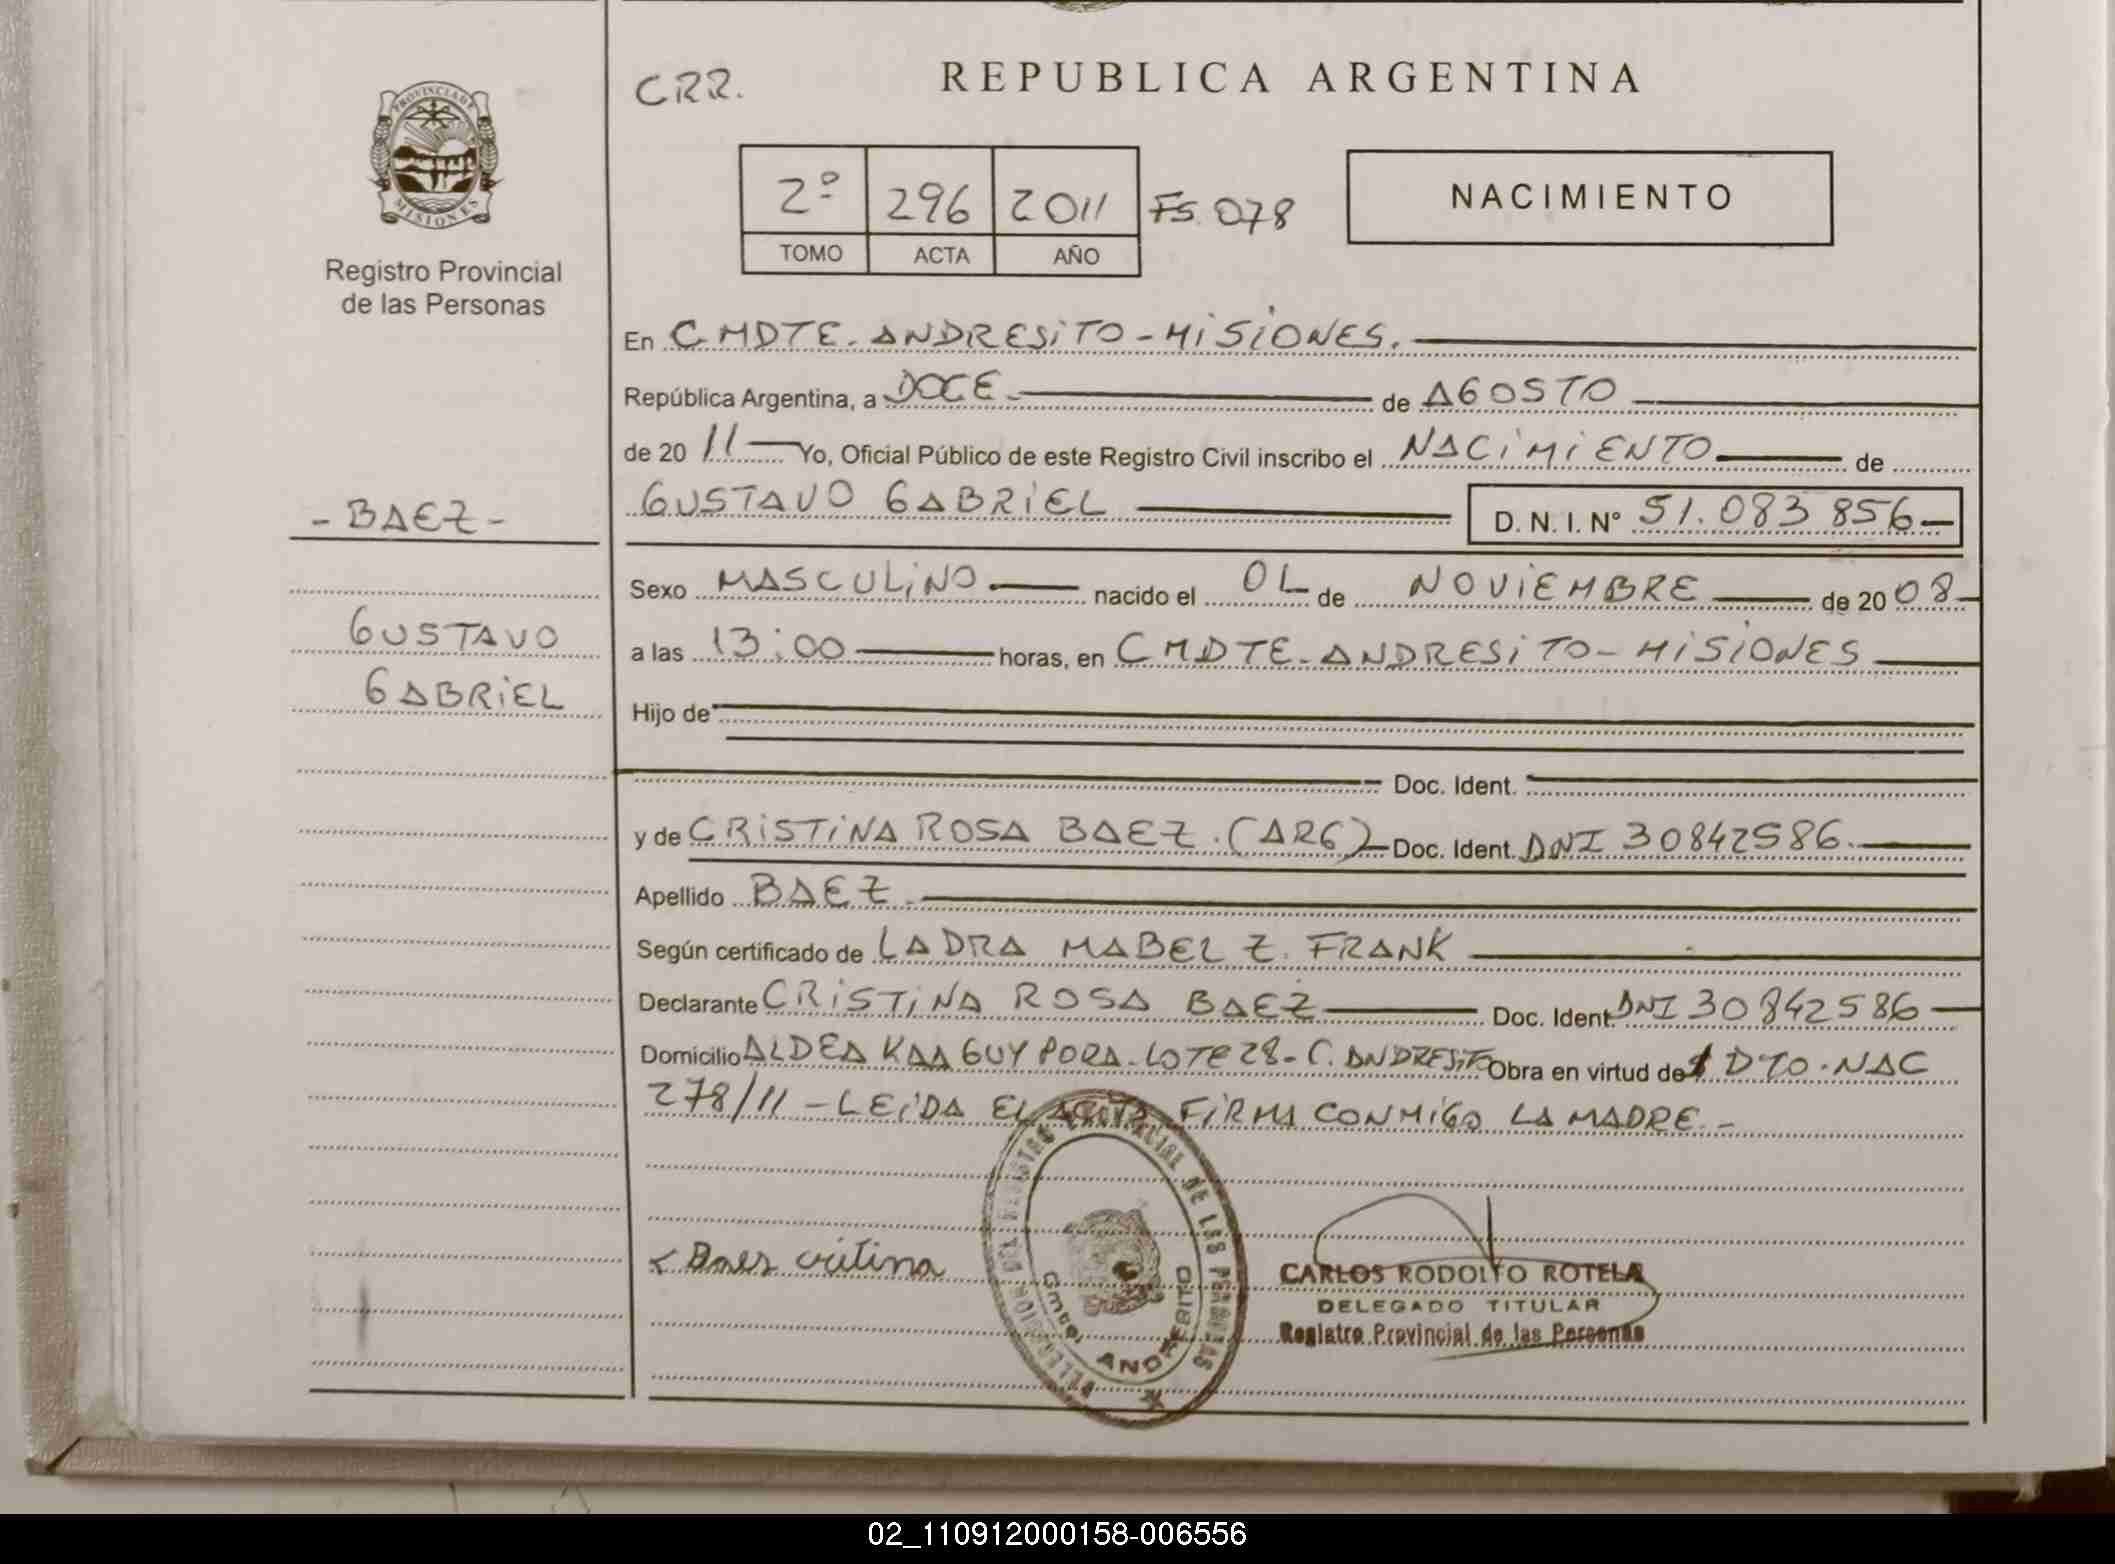 PROVINCIA DE
MISIONES
Registro Provincial
de las Personas
- BAEZ -
GUSTAVO
GABRIEL
CRR.
REPUBLICA ARGENTINA
2º 296 2011 FS. 078
TOMO ACTA AÑO
NACIMIENTO
En CMDTE. ANDRESITO - MISIONES.
República Argentina, a DOCE de AGOSTO
de 20 11 Yo, Oficial Público de este Registro Civil inscribo el NACIMIENTO de
GUSTAVO GABRIEL D. N. I. Nº 51.083 856
Sexo MASCULINO nacido el 0L de NOVIEMBRE de 20 08
a las 13:00 horas, en CMDTE. ANDRESITO - MISIONES
Hijo de
Doc. Ident.
y de CRISTINA ROSA BAEZ. (ARG) Doc. Ident. DNI 30842586.
Apellido BAEZ.
Según certificado de LA DRA MABEL Z. FRANK
Declarante CRISTINA ROSA BAEZ Doc. Ident. DNI 30842586
Domicilio ALDEA KAAGUY PORA - LOTE 28 - C. ANDRESITO Obra en virtud de DTO. NAC
278/11 - LEIDA EL ACTA FIRMA CONMIGO LA MADRE. -
Baez critina
DELEGACION DEL REGISTRO PROVINCIAL DE LAS PERSONAS
Cmte. ANDRESITO
CARLOS RODOLFO ROTELA
DELEGADO TITULAR
Registro Provincial de las Personas
02_110912000158-006556